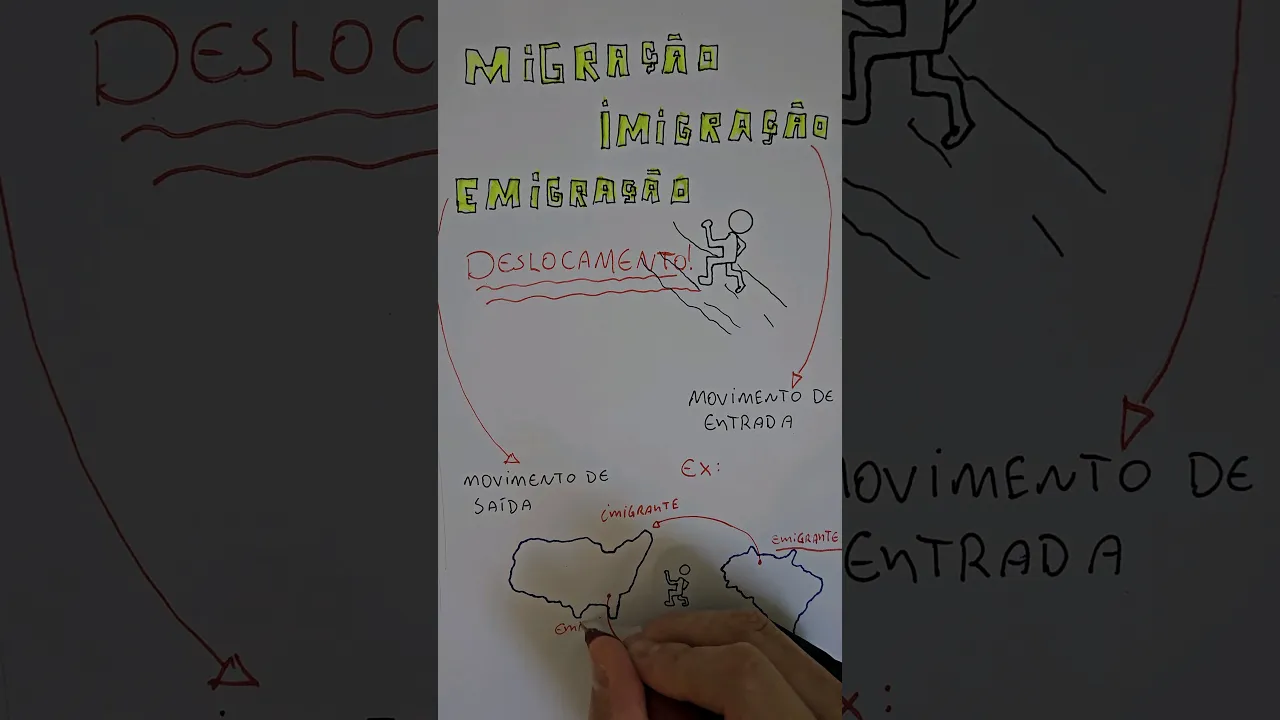 MIGRAÇÃO
IMIGRAÇÃO
EMIGRAÇÃO
DESLOCAMENTO!
MOVIMENTO DE
ENTRADA
EX:
MOVIMENTO DE
SAÍDA
IMIGRANTE
EMIGRANTE